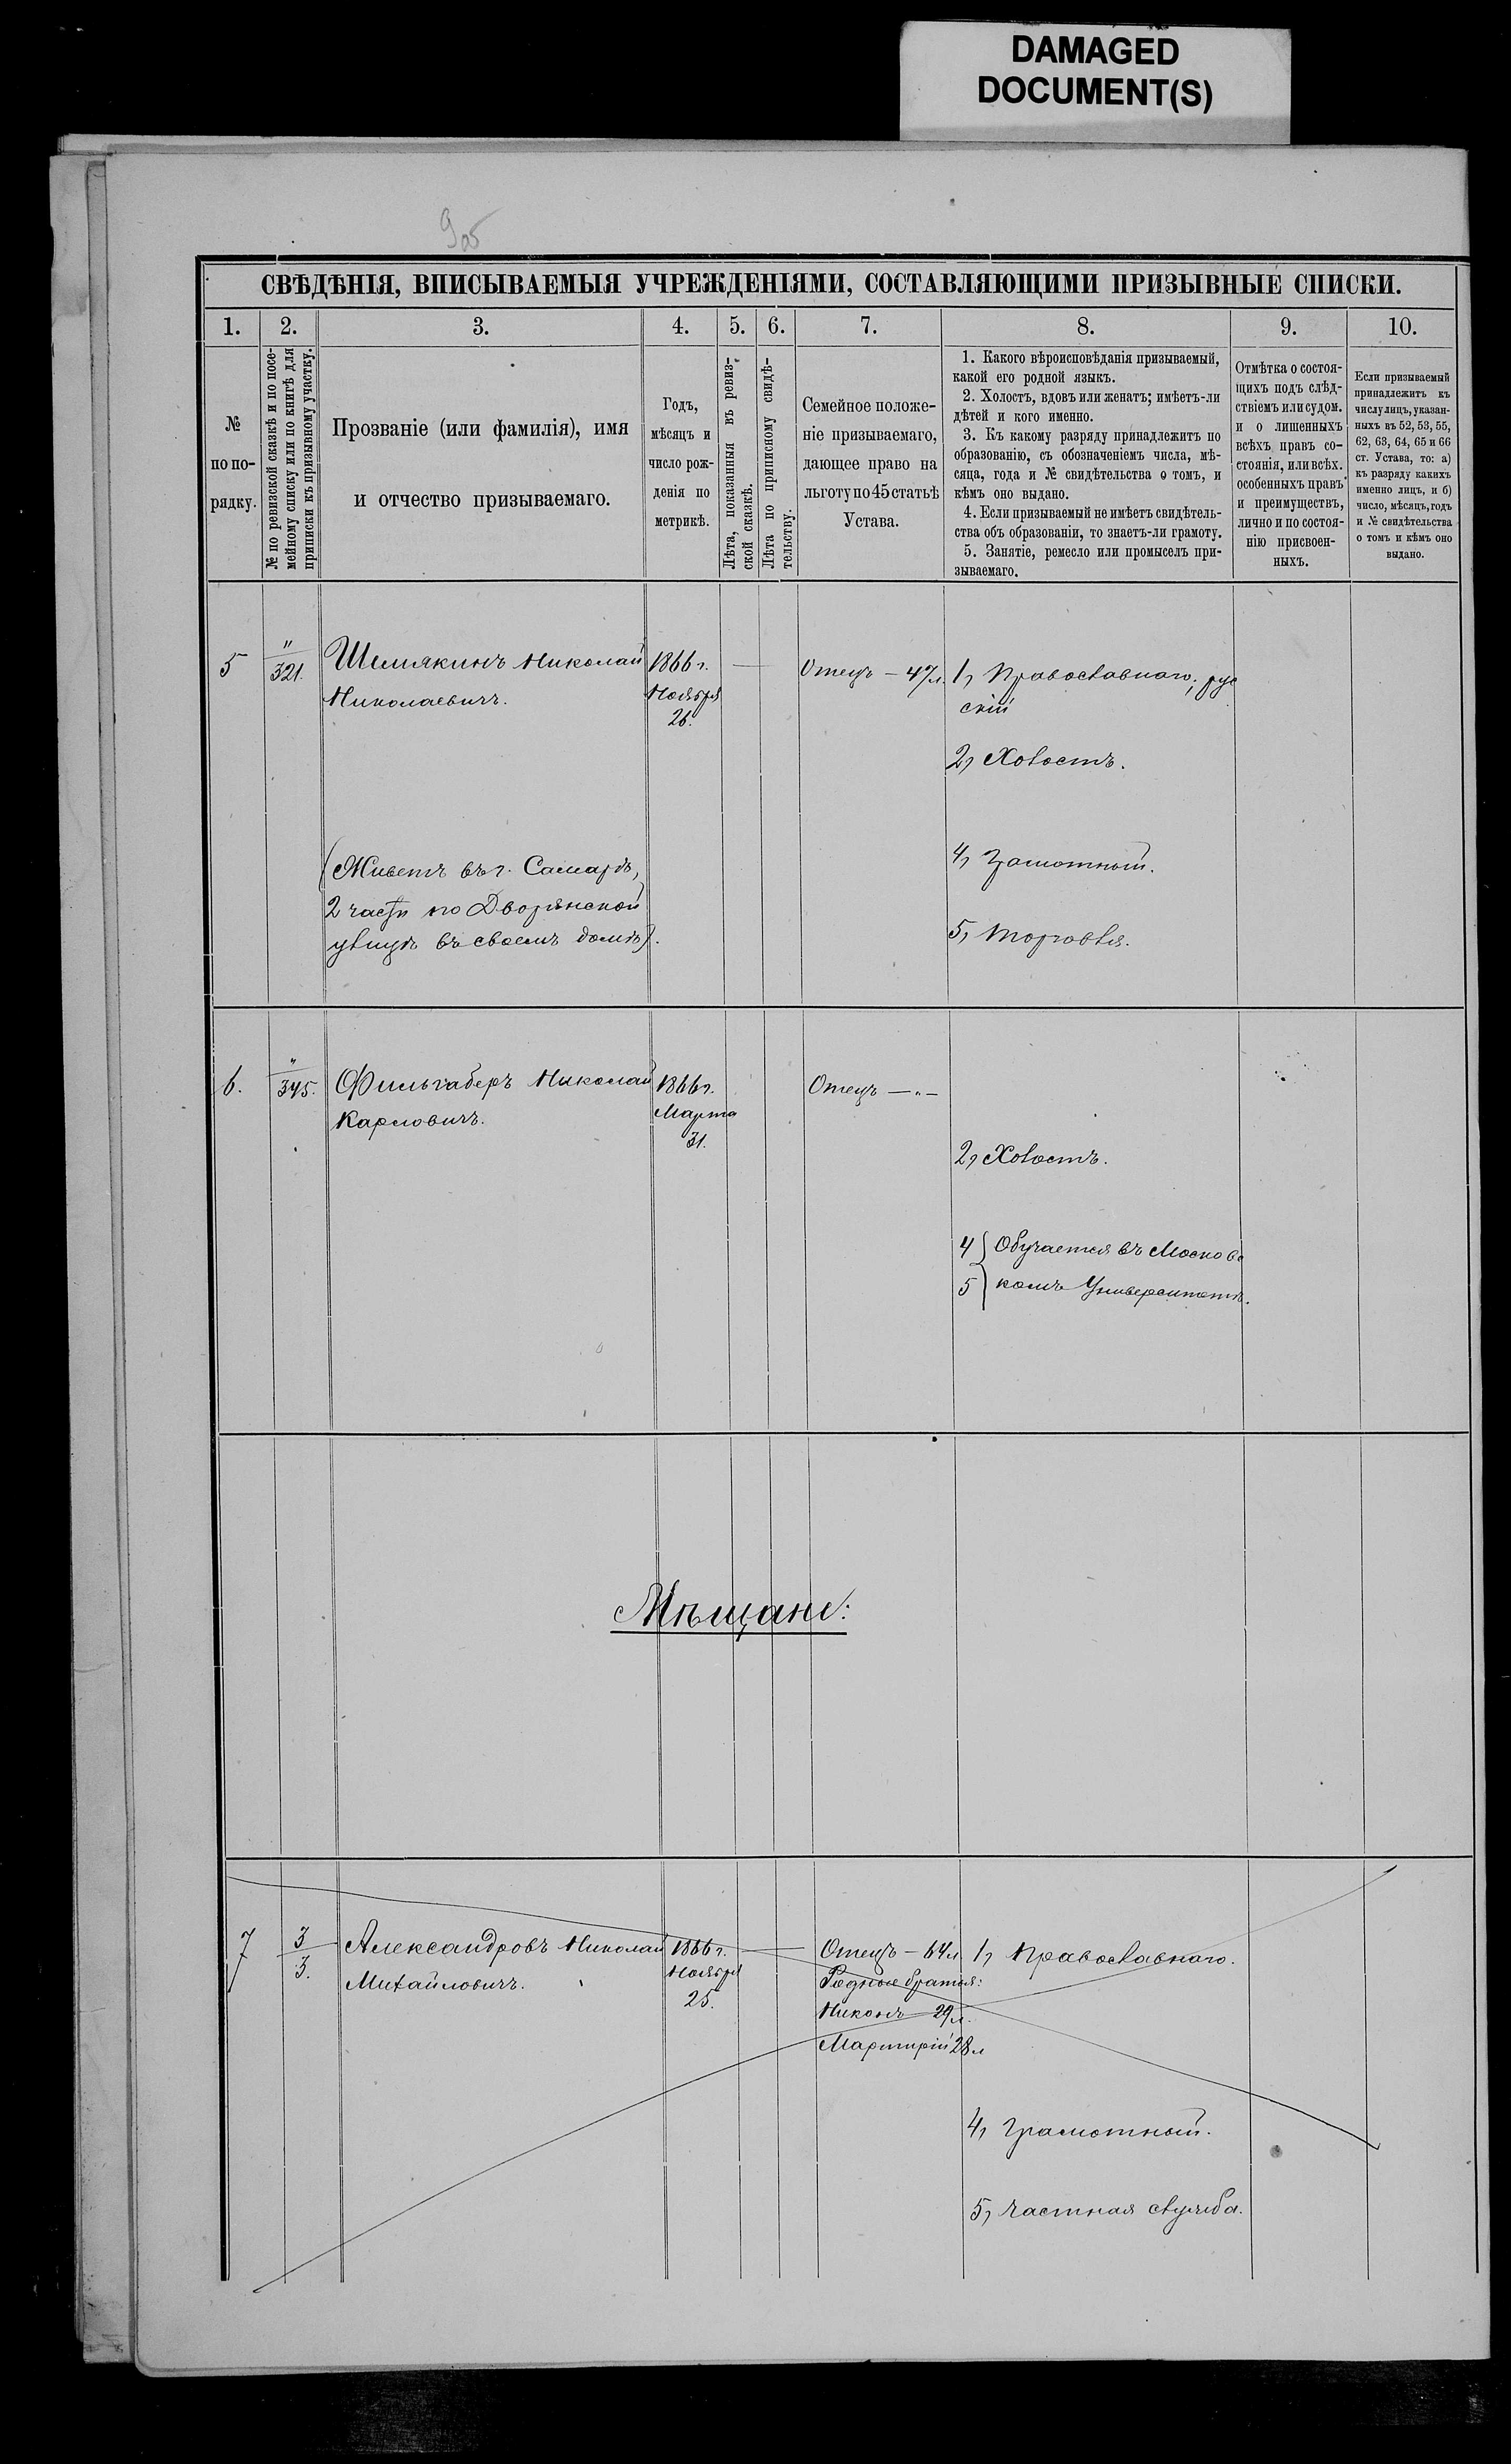 DAMAGED
DOCUMENT(S)
9об
СВѢДѢНІЯ, ВПИСЫВАЕМЫЯ УЧРЕЖДЕНІЯМИ, СОСТАВЛЯЮЩИМИ ПРИЗЫВНЫЕ СПИСКИ.
1. 2. 3. 4. 5. 6. 7. 8. 9. 10.
№
по по-
рядку.
№ по ревизской сказкѣ и по посе-
мейному списку или по книгѣ для
приписки къ призывному участку.
Прозваніе (или фамилія), имя
и отчество призываемаго.
Годъ,
мѣсяцъ и
число рож-
денія по
метрикѣ.
Лѣта, показанныя въ ревиз-
ской сказкѣ.
Лѣта по приписному свидѣ-
тельству.
Семейное положе-
ніе призываемаго,
дающее право на
льготу по 45 статьѣ
Устава.
1. Какого вѣроисповѣданія призываемый,
какой его родной языкъ.
2. Холостъ, вдовъ или женатъ; имѣетъ-ли
дѣтей и кого именно.
3. Къ какому разряду принадлежитъ по
образованію, съ обозначеніемъ числа, мѣ-
сяца, года и № свидѣтельства о томъ, и
кѣмъ оно выдано.
4. Если призываемый не имѣетъ свидѣтель-
ства объ образованіи, то знаетъ-ли грамоту.
5. Занятіе, ремесло или промыселъ при-
зываемаго.
Отмѣтка о состоя-
щихъ подъ слѣд-
ствіемъ или судом.
и о лишенныхъ
всѣхъ правъ со-
стоянія, или всѣх.
особенныхъ правъ
и преимуществъ,
лично и по состоя-
нію присвоен-
ныхъ.
Если призываемый
принадлежитъ къ
числу лицъ, указан-
ныхъ въ 52, 53, 55,
62, 63, 64, 65 и 66
ст. Устава, то: а)
къ разряду какихъ
именно лицъ, и б)
число, мѣсяцъ, годъ
и № свидѣтельства
о томъ и кѣмъ оно
выдано.
5
"
321.
Шемякинъ Николай
Николаевичъ.
(Живетъ въ г. Самарѣ,
2 части по Дворянской
улицѣ въ своемъ домѣ).
1866 г.
Ноября
26.
Отецъ — 47 л.
1, Православнаго; рус
скій
2, Холостъ.
4, Грамотный.
5, Торговля.
6.
"
345.
Фильгаберъ Николай
Карловичъ.
1866 г.
Марта
31.
Отецъ — " —
2, Холостъ.
4 } Обучается въ Московс
5 } комъ Университетѣ.
Мѣщане:
7
3
3.
Александровъ Николай
Михайловичъ.
1866 г.
Ноября
25.
Отецъ — 64 л
Родные братья:
Никонъ — 29 л.
Мартирій 28 л
1, Православнаго.
4, Грамотный.
5, Частная служба.